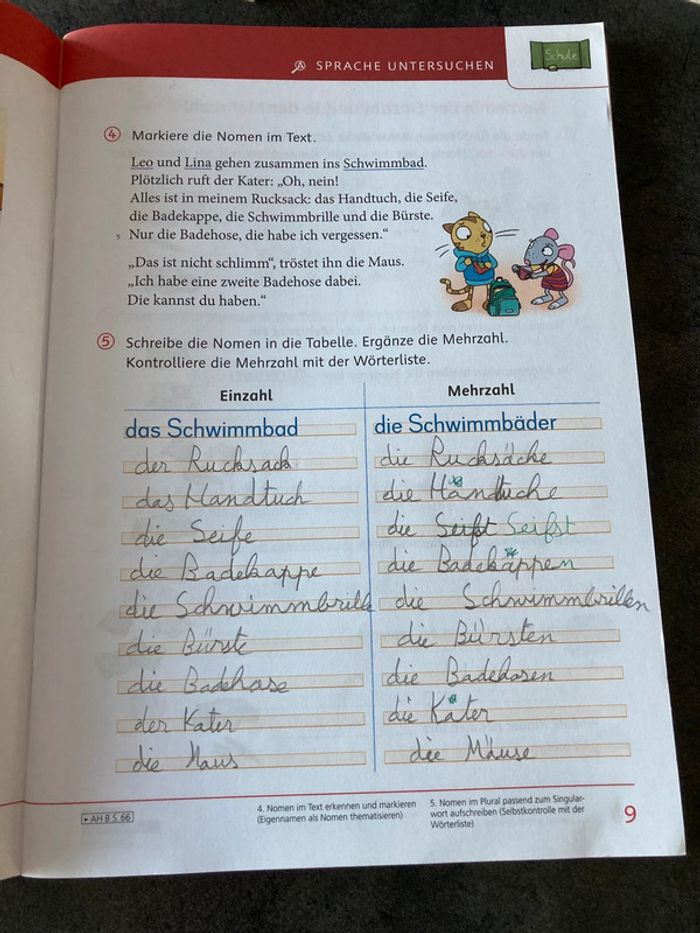 SPRACHE UNTERSUCHEN
Schule
4 Markiere die Nomen im Text.
Leo und Lina gehen zusammen ins Schwimmbad.
Plötzlich ruft der Kater: „Oh, nein!
Alles ist in meinem Rucksack: das Handtuch, die Seife,
die Badekappe, die Schwimmbrille und die Bürste.
5 Nur die Badehose, die habe ich vergessen.“
„Das ist nicht schlimm“, tröstet ihn die Maus.
„Ich habe eine zweite Badehose dabei.
Die kannst du haben.“
5 Schreibe die Nomen in die Tabelle. Ergänze die Mehrzahl.
Kontrolliere die Mehrzahl mit der Wörterliste.
Einzahl Mehrzahl
das Schwimmbad die Schwimmbäder
der Rucksack die Rucksäche
das Handtuch die Händtuche
die Seife die Seifst Seifst
die Badekappe die Badekäppen
die Schwimmbrille die Schwimmbrillen
die Bürste die Bürsten
die Badehose die Badehosen
der Kater die Käter
die Maus die Mäuse
▸ AH B S. 66
4. Nomen im Text erkennen und markieren
(Eigennamen als Nomen thematisieren)
5. Nomen im Plural passend zum Singular-
wort aufschreiben (Selbstkontrolle mit der
Wörterliste)
9